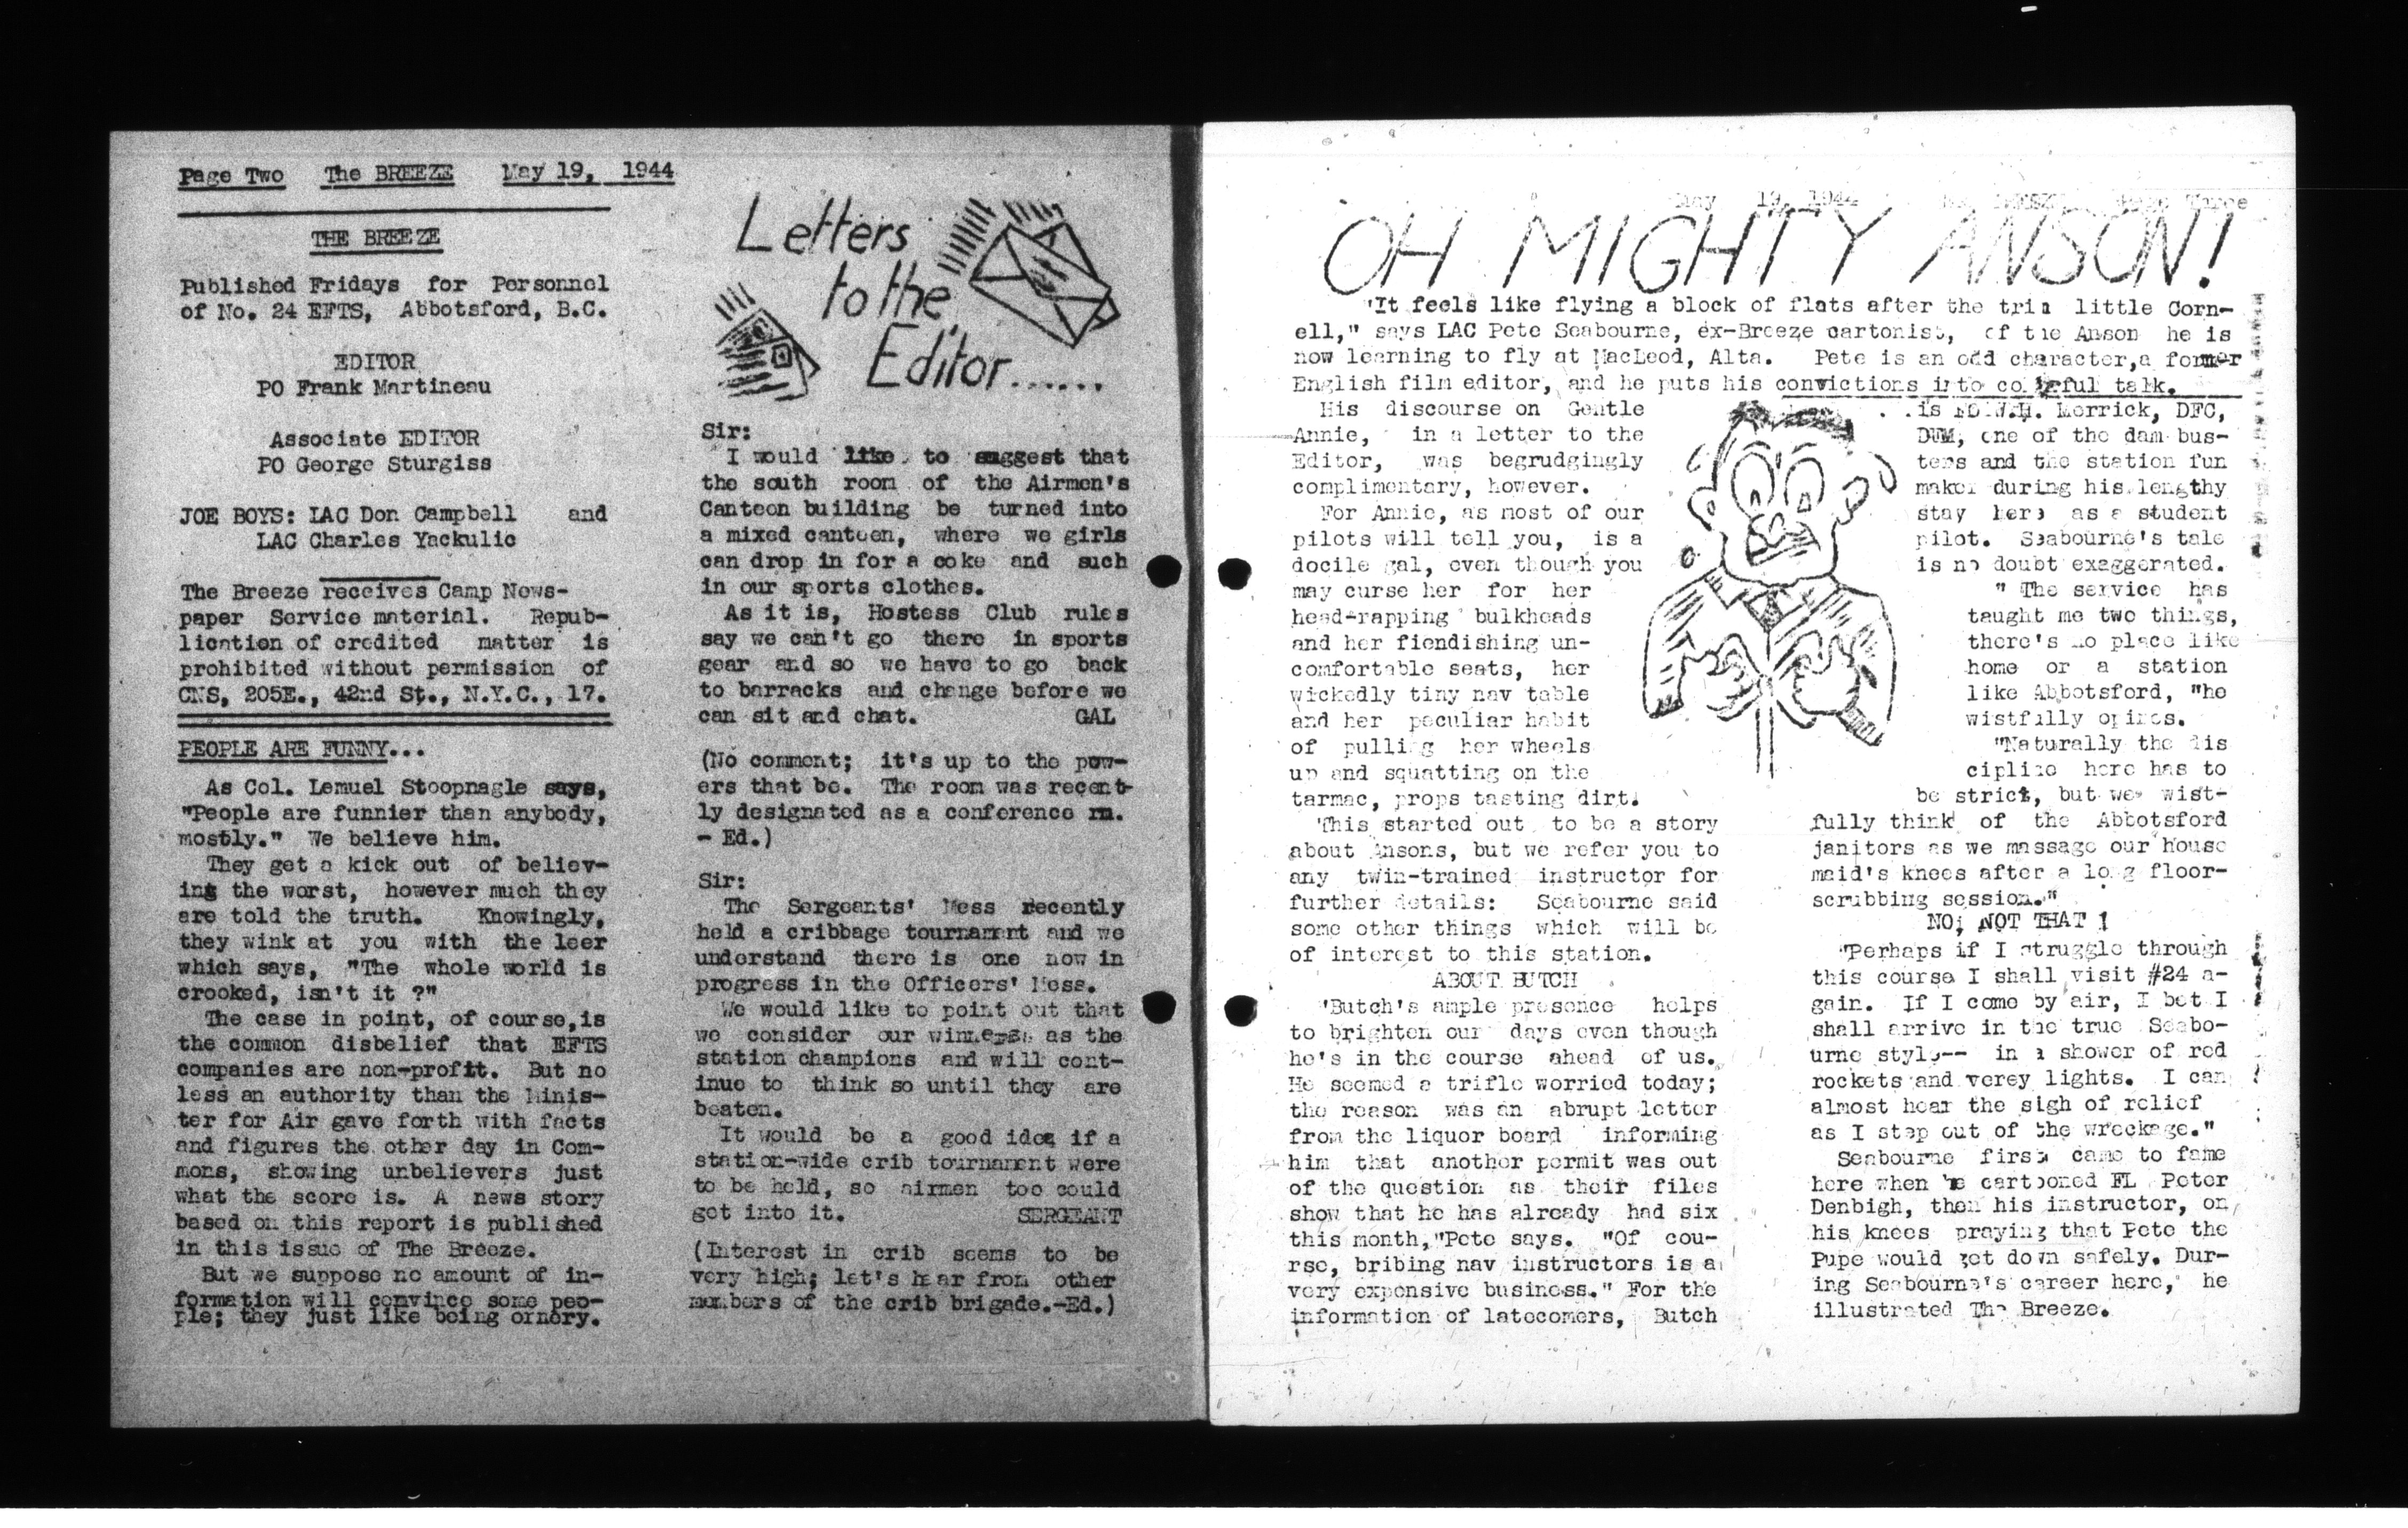 Page Two The BREEZE May 19, 1944
THE BREEZE
Published Fridays for Personnel
of No. 24 EFTS, Abbotsford, B.C.
EDITOR
PO Frank Martineau
Associate EDITOR
PO George Sturgiss
JOE BOYS: LAC Don Campbell and
LAC Charles Yackulic
The Breeze receives Camp News-
paper Service material. Repub-
lication of credited matter is
prohibited without permission of
CNS, 205E., 42nd St., N.Y.C., 17.
PEOPLE ARE FUNNY...
As Col. Lemuel Stoopnagle says,
"People are funnier than anybody,
mostly." We believe him.
They get a kick out of believ-
ing the worst, however much they
are told the truth. Knowingly,
they wink at you with the leer
which says, "The whole world is
crooked, isn't it ?"
The case in point, of course,is
the common disbelief that EFTS
companies are non-profit. But no
less an authority than the Minis-
ter for Air gave forth with facts
and figures the other day in Com-
mons, showing unbelievers just
what the score is. A news story
based on this report is published
in this issue of The Breeze.
But we suppose no amount of in-
formation will convince some peo-
ple; they just like being ornery.
Letters
to the
Editor......
Sir:
I would like to suggest that
the south room of the Airmen's
Canteen building be turned into
a mixed canteen, where we girls
can drop in for a coke and such
in our sports clothes.
As it is, Hostess Club rules
say we can't go there in sports
gear and so we have to go back
to barracks and change before we
can sit and chat. GAL
(No comment; it's up to the pow-
ers that be. The room was recent-
ly designated as a conference rm.
- Ed.)
Sir:
The Sergeants' Mess recently
held a cribbage tournament and we
understand there is one now in
progress in the Officers' Mess.
We would like to point out that
we consider our winners as the
station champions and will cont-
inue to think so until they are
beaten.
It would be a good idea if a
station-wide crib tournament were
to be held, so airmen too could
get into it. SERGEANT
(Interest in crib seems to be
very high; let's hear from other
members of the crib brigade.-Ed.)
May 19, 1944 BREEZE Page Three
OH MIGHTY ANSON!
"It feels like flying a block of flats after the trim little Corn-
ell," says LAC Pete Seabourne, ex-Breeze cartonist, of the Anson he is
now learning to fly at MacLeod, Alta. Pete is an odd character,a former
English film editor, and he puts his convictions into colorful talk.
His discourse on Gentle
Annie, in a letter to the
Editor, was begrudgingly
complimentary, however.
For Annie, as most of our
pilots will tell you, is a
docile gal, even though you
may curse her for her
head-rapping bulkheads
and her fiendishing un-
comfortable seats, her
wickedly tiny nav table
and her peculiar habit
of pulling her wheels
up and squatting on the
tarmac, props tasting dirt.
This started out to be a story
about Ansons, but we refer you to
any twin-trained instructor for
further details: Seabourne said
some other things which will be
of interest to this station.
ABOUT BUTCH
"Butch's ample presence helps
to brighten our days even though
he's in the course ahead of us.
He seemed a trifle worried today;
the reason was an abrupt letter
from the liquor board informing
him that another permit was out
of the question as their files
show that he has already had six
this month,"Pete says. "Of cou-
rse, bribing nav instructors is a
very expensive business." For the
information of latecomers, Butch
..is W.H. Merrick, DFC,
DUM, one of the dam bus-
ters and the station fun
maker during his lengthy
stay here as a student
pilot. Seabourne's tale
is no doubt exaggerated.
" The service has
taught me two things,
there's no place like
home or a station
like Abbotsford, "he
wistfully opines.
"Naturally the dis
cipline here has to
be strict, but we wist-
fully think of the Abbotsford
janitors as we massage our house
maid's knees after a long floor-
scrubbing session."
NO, NOT THAT !
"Perhaps if I struggle through
this course I shall visit #24 a-
gain. If I come by air, I bet I
shall arrive in the true Seabo-
urne style-- in a shower of red
rockets and verey lights. I can
almost hear the sigh of relief
as I step out of the wreckage."
Seabourne first came to fame
here when he cartooned FL Peter
Denbigh, then his instructor, on
his knees praying that Pete the
Pupe would get down safely. Dur-
ing Seabourne's career here, he
illustrated The Breeze.